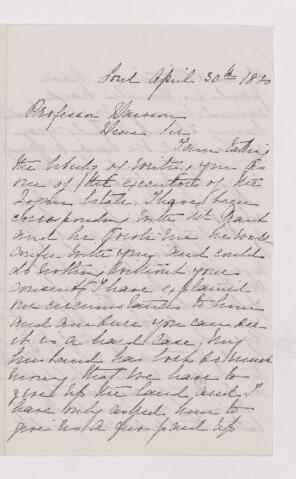 Sorel April 30th 1880
Professor Dawson
Dear Sir
I am taking
the liberty of writing you as
one of the executors of the
Logan Estate. I have been
corresponding with Mr Grant
and he wrote me he would
confer with you and could
do nothing without your
consent I have explained
our circumstances to him
and
you can see
it is a hard case, my
husband has lost so much
money that we have to
give up the land and I
have only asked him to
give us a few pound up